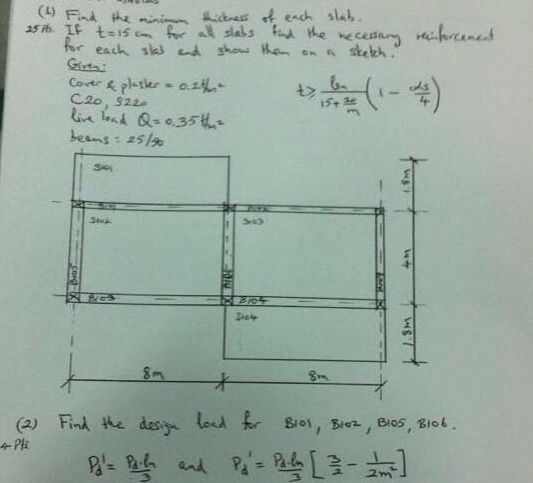 (1) Find the minimum thickness of each slab.
25 Pts. If t=15 cm for all slabs find the necessary reinforcement
for each slab and show them on a sketch.
Given:
Cover & plaster = 0.2 t/m²
C20, S220
live load Q = 0.35 t/m²
t ≥ ln / (15 + 20/m) (1 - αs/4)
S101
1.5m
B101
B102
S102
S103
4m
B105
B106
B103
B104
S104
1.5m
8m
8m
(2) Find the design load for B101, B102, B105, B106.
4 Pts
Pd' = Pd.ln/3 and Pd' = Pd.ln/3 [3/2 - 1/2m²]